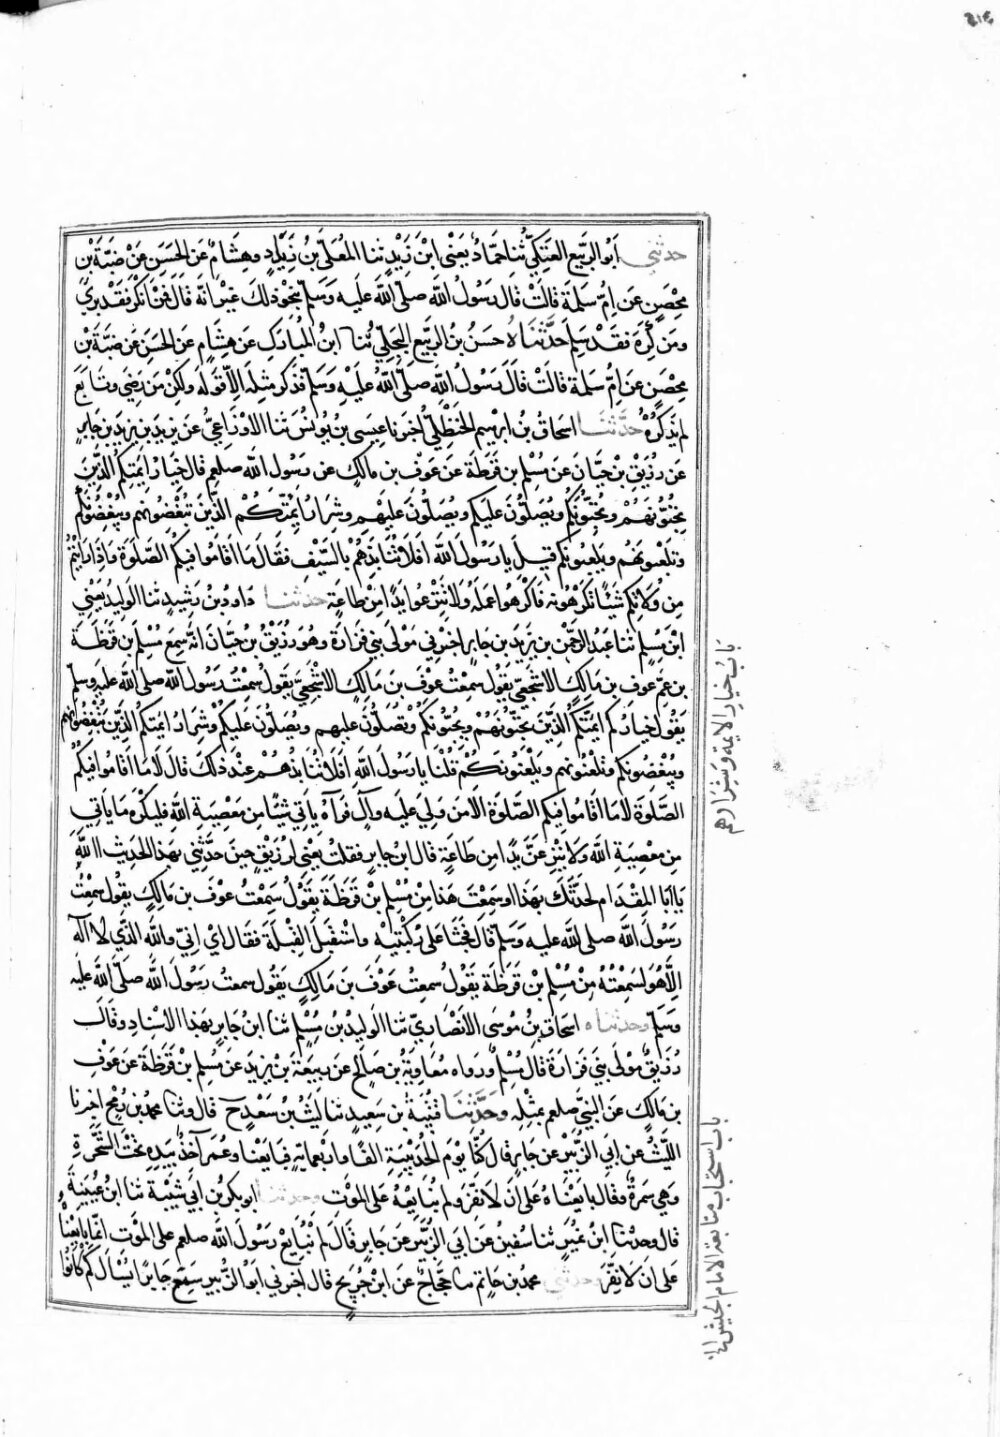 ٤١٤
حدثني أَبُو الرَّبيع العَتَكِيُّ ثنا حمَّادٌ يَعْني ابْنَ زَيْدٍ ثنا المُعَلَّى بْنُ زِيَادٍ وهِشَامٌ عَنِ الحَسَنِ عَنْ ضَبَّةَ بْنِ
مِحْصَنٍ عَن اُمِّ سَلَمَةَ قَالَتْ قَالَ رَسُولُ اللّه صلّى اللّه عَلَيه وَسَلّم بنَحْوِ ذلك غَيْرَ انّه قَالَ فَمَنْ انْكَرَ فَقَدْ بَرِئَ
ومَن كَرِهَ فقَدْ سَلِمَ حَدَّثَنَاهُ حَسَنُ بنُ الرَّبيع البَجَلِيّ ثنا ابْنُ المُبَارَكِ عَن هِشَامٍ عَنِ الحَسَنِ عَن ضَبَّةَ بْنِ
مِحْصَنٍ عَن اُمِّ سَلَمَةَ قَالَتْ قَالَ رَسُولُ اللّه صَلّى اللّه عَلَيْهِ وَسَلّم فَذَكَرَ مثِلَه الاّ قَولَه ولكِنْ مَن رَضِيَ وتَابَعَ
لم يَذكُرْهُ حدَّثنَا اسحَاقُ بن ابرْهِيمَ الحَنْظَلِيُّ اخبرنا عيسَى بن يُونُسَ ثنا الاَوْزَاعِيُّ عَن يَزِيدَ بن يزيدَ بن جَابرٍ
عن رُزَيقِ بْنِ حَيَّانَ عَن مُسْلِمِ بن قَرَظَةَ عَن عَوْفِ بن مالكٍ عن رَسُولِ اللّه صلعم قال خِيَارُ ايِمَّتِكُم الَّذِينَ
تحِبُّونَهُمْ ويُحِبُّونَكُمْ ويُصَلُّونَ عَلَيكُمْ وتُصَلُّونَ عَلَيْهِمْ وشِرَارُ ايِمَّتِكُمُ الَّذِينَ تُبْغِضُونَهُم ويُبْغِضُونَكُمْ
وتَلعَنُونَهُم ويَلعَنُونَكُم قِيلَ يا رَسُولَ اللّه اَفَلاَ نُنَابِذُهُمْ بالسَّيْفِ فقَالَ لا مَا اَقَامُوا فِيكُمُ الصَّلوةَ واذَا رَايتُمْ
مِن وُلاَتِكُم شَيْئًا تَكْرَهُونَه فَاكْرَهُوا عَمَلَهُ ولاَ تَنْزِعُوا يَدًا مِنْ طَاعَةٍ حدثنا داودُ بنُ رُشَيدٍ ثنا الوَلِيدُ يَعْني
ابْنَ مُسلِمٍ ثنا عَبدُ الرَّحمٰنِ بن يَزِيدَ بن جَابِرٍ اخبرني مَولَى بَني فَزَارَةَ وهُوَ رُزَيْقُ بنُ حَيَّانَ انّهُ سَمِعَ مُسْلِمَ بن قَرَظَةَ
بن عَمِّ عَوفِ بن مَالكٍ الاشْجَعيِّ يَقُولُ سمِعتُ عَوفَ بن مَالكٍ الاَشْجَعِيَّ يَقُولُ سمِعْتُ رَسُولَ اللّه صلى اللّه عَلَيهِ وسلّم
يَقُولُ خيَارُكُم ايِمَّتِكُمُ الَّذِينَ تحِبُّونَهُمْ ويُحِبُّونَكُمْ وتُصَلُّونَ عَليهِم ويُصَلُّونَ عَلَيكُمْ وَشِرَارُ ايِمَّتِكُمُ الَّذِينَ تُبْغِضُونَهُم
ويُبْغِضُونَكُم وتَلعَنُونَهم ويَلعَنُونَكُمْ قُلْنَا يا رَسُولَ اللّه اَفَلاَ نُنَابِذُهُمْ عِنْدَ ذلِكَ قَالَ لاَ مَا اَقَامُوا فيكُمُ
الصَّلوةَ لاَ مَا اَقَامُوا فيكُمُ الصَّلوةَ الاَ مَن وَلِيَ عَليه وَالٍ فَرَآهُ يَاتي شَيْئًا مِن مَعْصِيَةِ اللّهِ فليَكْرَه مَا يَاتي
مِن مَعصِيَةِ اللّه وَلاَ يَنْزِعَنَّ يَدًا مِن طَاعَةٍ قال ابن جابرٍ فقلتُ يَعْني لرُزَيْقٍ حينَ حدَّثني بهَذَا الحَدِيث اللّهِ
يَا اَبَا المِقْدَام لَحَدَّثَكَ بهَذَا او سَمِعْتَ هَذَا مِنْ مُسْلِم بْنِ قَرَظَةَ يَقُولُ سَمِعْتُ عَوْفَ بن مَالكٍ يَقُولُ سمِعْتُ
رَسُولَ اللّه صلى اللّه عليه وَسَلّم قَال فجَثَا عَلَى رُكْبَتَيْهِ واسْتَقْبَلَ القِبْلَةَ فقَالَ اي انّي واللّهِ الَّذي لا اله
الاّ هُوَ لَسَمِعْتُهُ مِنْ مُسْلِمِ بْنِ قَرَظَةَ يَقُولُ سمِعتُ عَوْفَ بن مَالكٍ يَقُول سمعتُ رَسُولَ اللّه صَلّى اللّه عليه
وَسلّم وحدثناه اسحَاقُ بن مُوسَى الاَنصَارِيّ ثنا الوَلِيدُ بْنُ مُسْلِمٍ ثنا ابنُ جَابِرٍ بهَذَا الاسْنَادِ وقَالَ
رُزَيقٌ مَوْلَى بَني فَزَارَةَ قال مُسْلِمٌ ورواه مُعَاوِيَةُ بن صَالحٍ عَن رَبيعَةَ بن يزِيدَ عَن مُسلِمِ بْنِ قَرَظَةَ عَن عَوْفِ
بن مَالكٍ عَن النَّبيّ صلعم بمثِلِهِ وحَدَّثنَا قتَيْبَةُ بن سَعِيدٍ ثنا لَيثُ بْنُ سَعْدٍ ح قال وثنا محمدُ بن رُمْحٍ اخبرنا
اللَّيثُ عَن اَبي الزُّبَيْرِ عَن جَابرٍ قال كنَّا يَوْمَ الحُدَيْبيَةِ الفًا واَرْبَعمائةٍ فبَايَعْنَاهُ وعُمَرُ آخِذٌ بيَدِهِ تحْتَ الشَّجَرَةِ
وهي سَمُرَةٌ وقال بايَعْنَاهُ على انْ لاَ نَفِرَّ ولم نُبَايعْهُ علَى المَوْت وحدثنا ابو بكرِ بن اَبي شَيْبَةَ ثنا ابنُ عُيَيْنَةَ
قال وحدّثنا ابْنُ نُمَيْرٍ ثنا سُفْينُ عَنْ اَبي الزُّبَيْرِ عَن جَابرٍ قَالَ لم نُبَايعْ رَسُولَ اللّه صلعم على المَوْتِ انَّما بَايَعْنَاهُ
عَلَى ان لاَ نَفِرَّ وحدثني محمدُ بن حَاتِمٍ ثنا حجَّاجٌ عَن ابنِ جُرَيجٍ قال اخبرَني اَبُو الزُّبيرِ سَمِعَ جَابرًا يُسْاَلُ كَم كَانُوا
بابُ خيار الايمّة وشرارهم
باب استحباب متابعة الامام الجيش